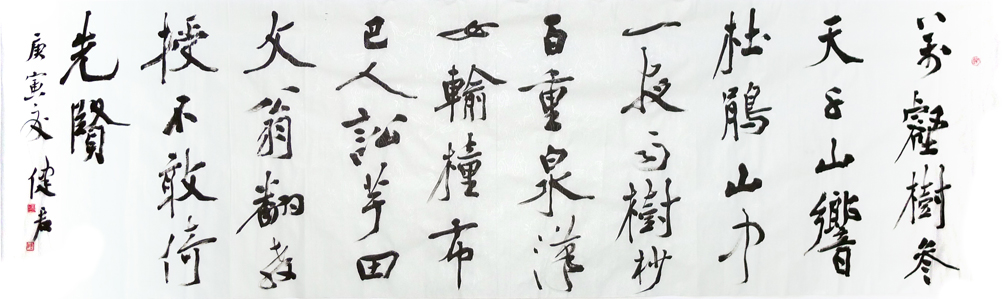 萬壑樹参
天千山響
杜鵑山中
一夜雨樹杪
百重泉漢
女輸橦布
巴人訟芋田
文翁翻教
授不敢倚
先賢
庚寅夏 健君